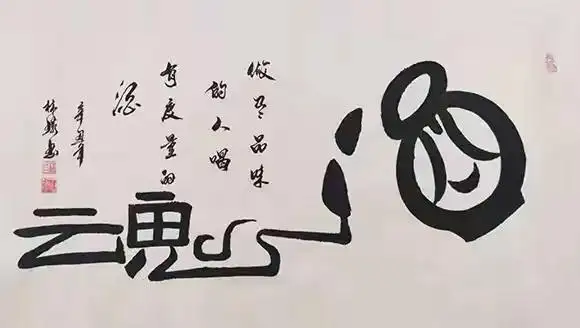 做有品味
的人喝
有度量的
酒
辛丑年
酒魂